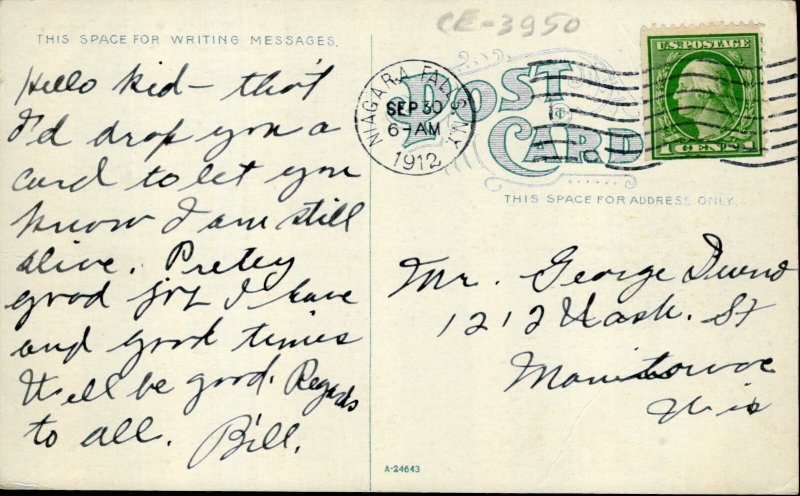 CE-3950
THIS SPACE FOR WRITING MESSAGES.
Hello Kid - tho't
I'd drop you a
card to let you
know I am still
alive. Pretty
good job I have
and good times
Well be good. Regards
to all. Bill.
NIAGARA FALLS N.Y.
SEP 30
6-AM
1912
POST
CARD
U.S. POSTAGE
CENT
THIS SPACE FOR ADDRESS ONLY.
Mr. George
1212 Wash. St
Manitowoc
Wis
A-24643